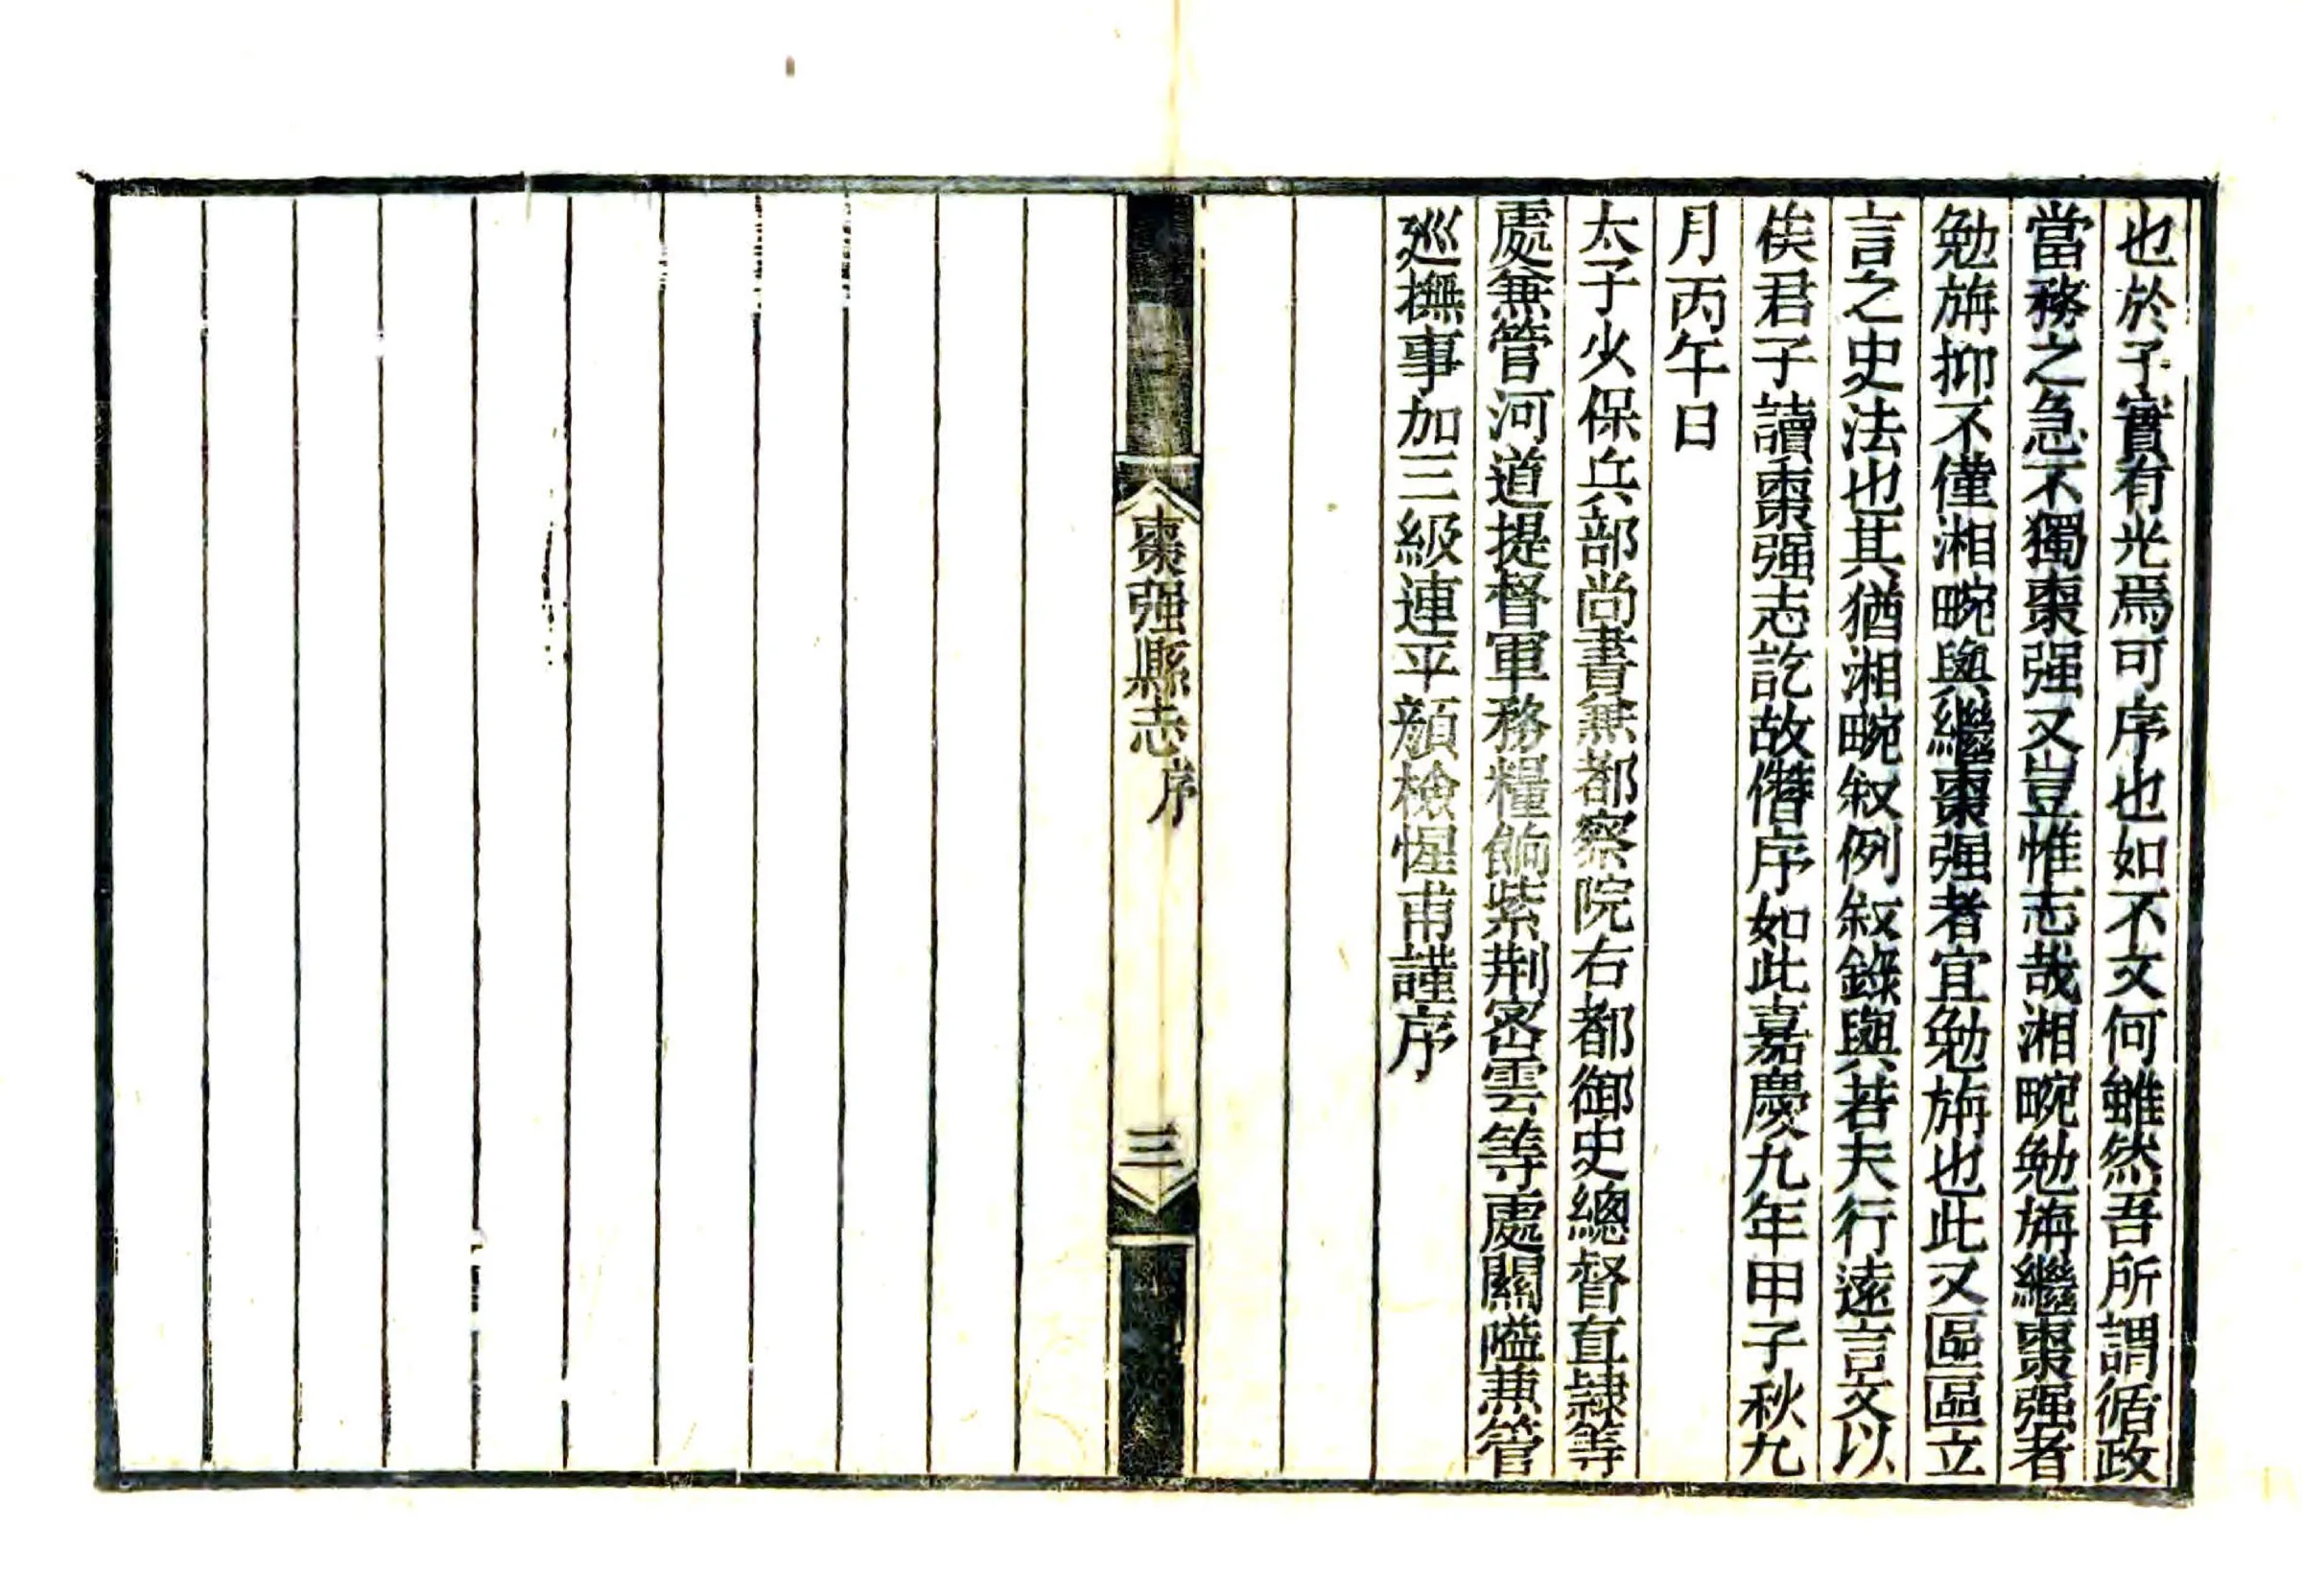 也於子實有光焉可序也如不文何雖然吾所謂循政
當務之急不獨棗强又豈惟志哉湘畹勉旃繼棗强者
勉旃抑不僅湘畹與繼棗强者宜勉旃也此又區區立
言之史法也其猶湘畹叙例叙錄與若夫行遠言文以
俟君子讀棗强志訖故僭序如此嘉慶九年甲子秋九
月丙午日
太子少保兵部尚書兼都察院右都御史總督直隸等
處兼管河道提督軍務糧餉紫荆密雲等處關隘兼管
廵撫事加三級連平顔檢惺甫謹序
棗强縣志 序 三